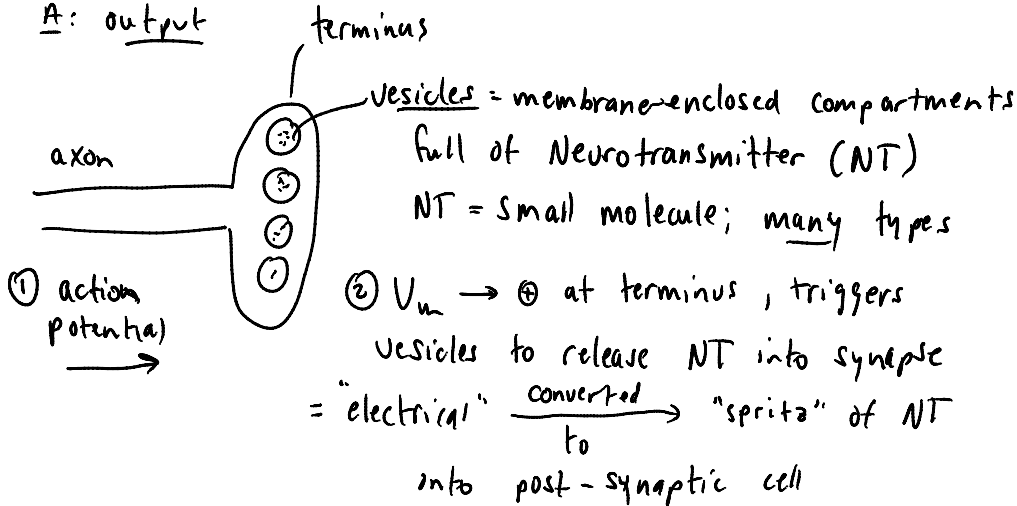 A: output
terminus
vesicles = membrane-enclosed compartments
full of Neurotransmitter (NT)
axon
NT = small molecule; many types
① action
potential
② Vm → ⊕ at terminus, triggers
vesicles to release NT into synapse
= "electrical" converted to → "spritz" of NT
into post-synaptic cell